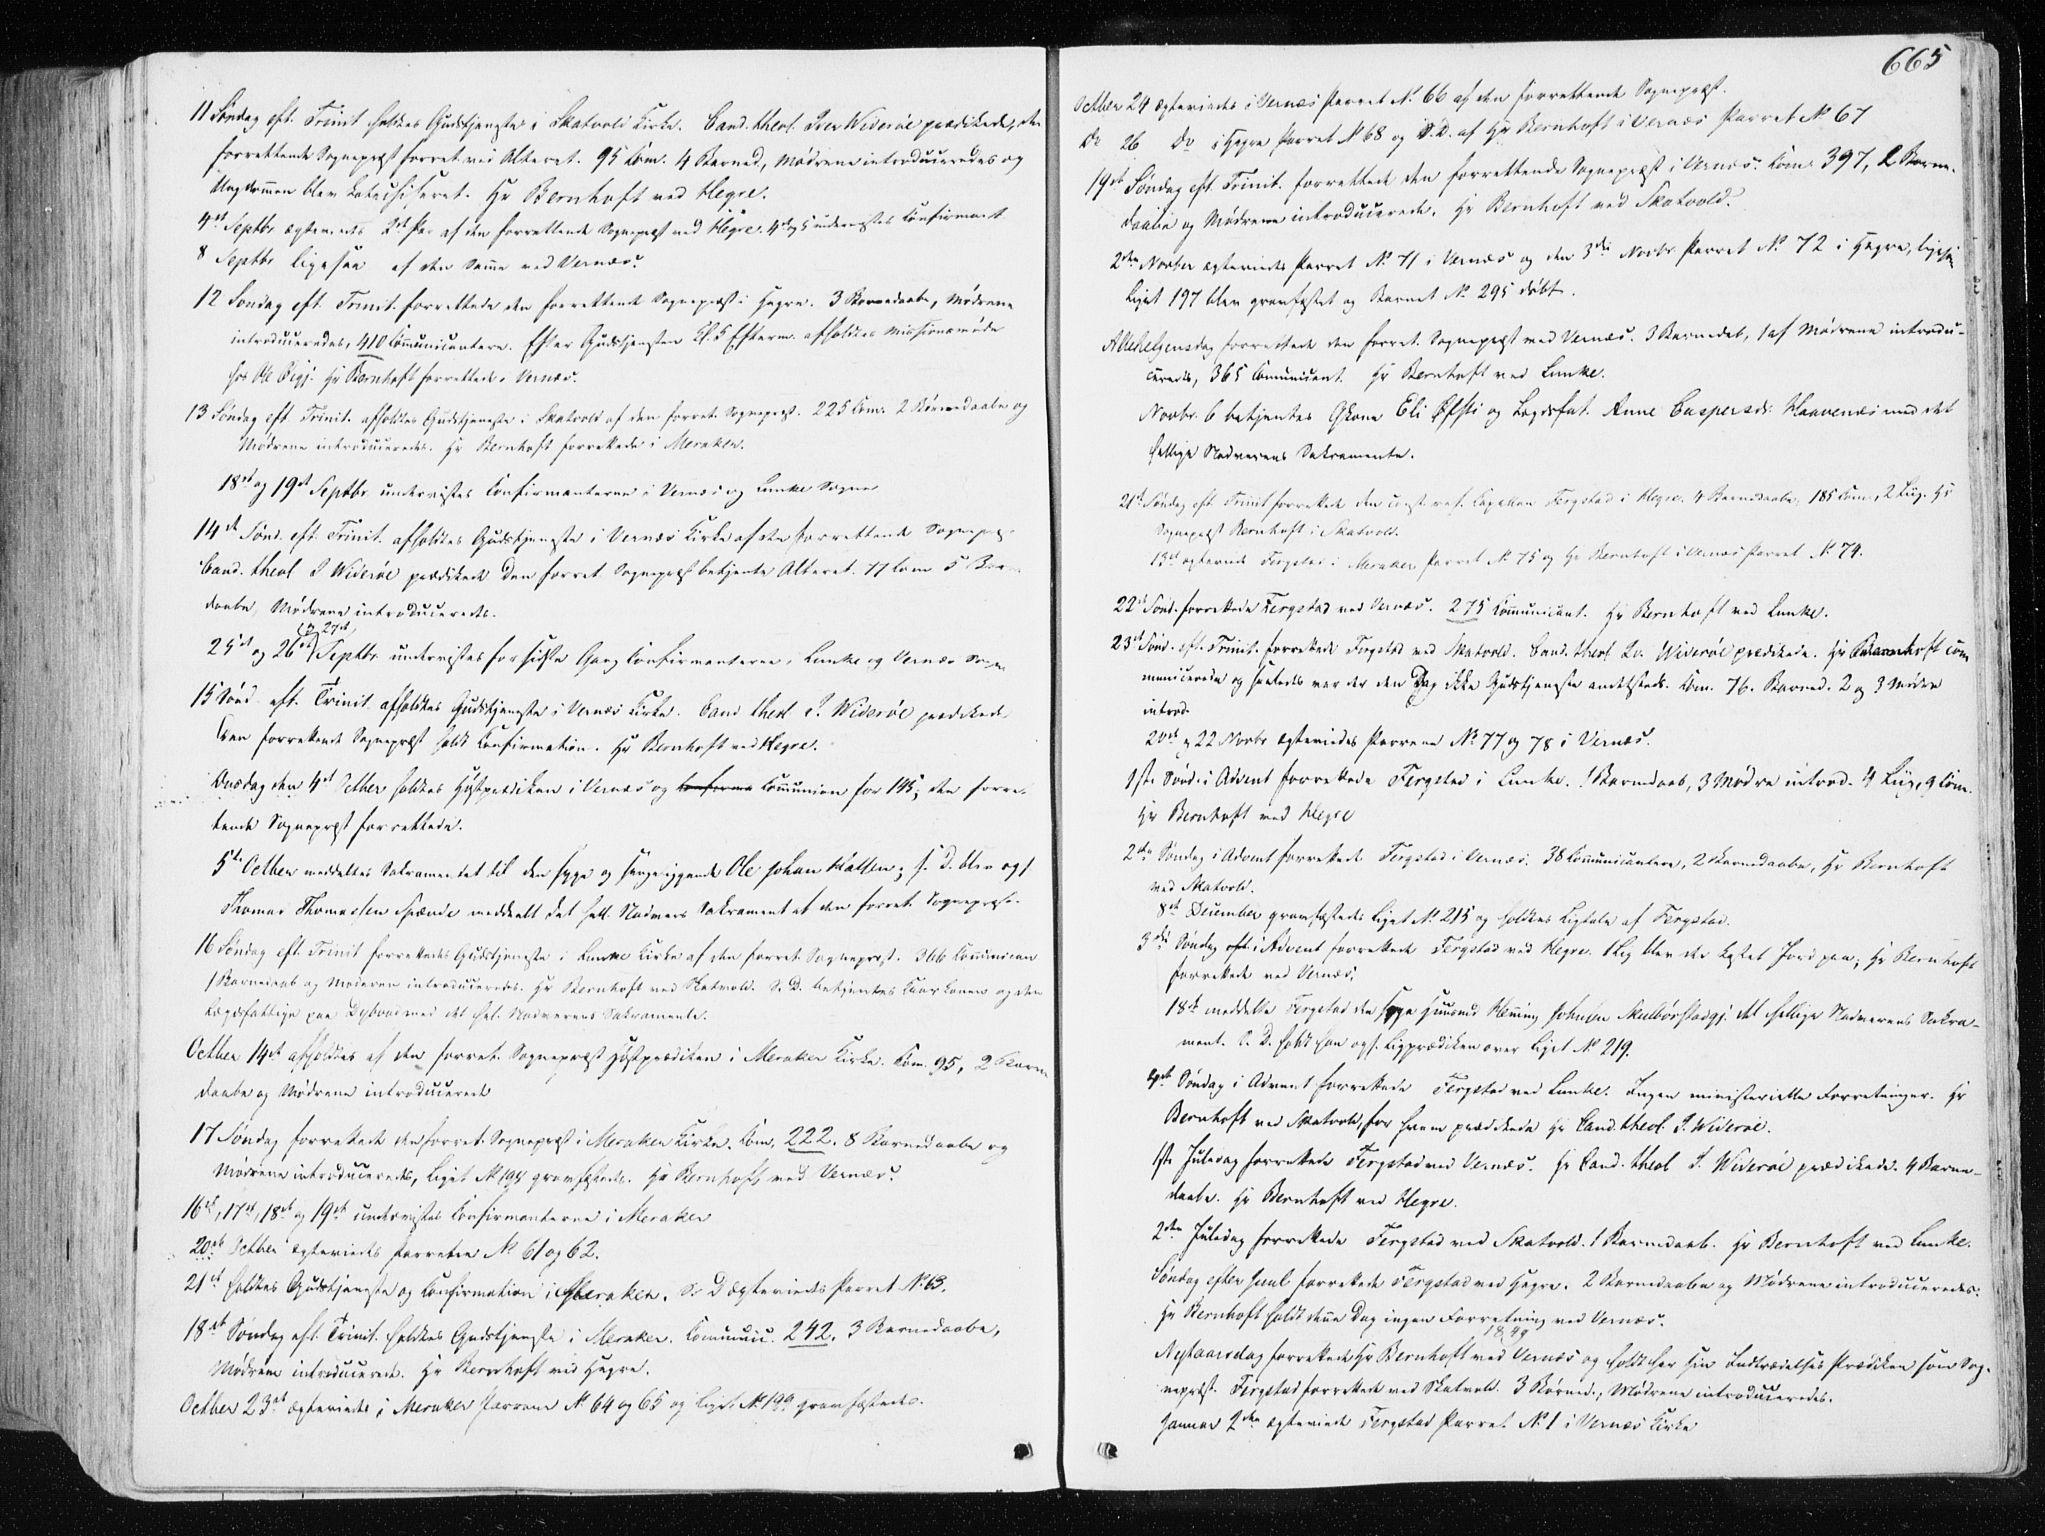 11 Søndag eft. Trinit holdtes Gudstjeneste i Skatvold Kirke. Cand. theol. Iver Widerøe prædikede, den
forrettende Sognepræst forret. ved Alteret. 95 Com. 4 Barned, Mødrene introduceredes og
Ungdommen blev katechiseret. Hr Bernhoft ved Hegre.
4de Septbr ægteviedes 2de Par af den forrettende Sognepræst ved Hegre. 4de og 5 undervistes Confirmant
8 Septbr ligesaa af den Samme ved Vernæs.
12 Søndag eft. Trinit. forrettede den forrettende Sognepræst i Hegre. 3 Barnedaabe, Mødrene
introduceredes, 410 Communicantere. Efter Gudstjenesten Kl. 5 Efterm. afholdtes Missionsmøde
hos Ole Bigj. Hr Bernhoft forrettede i Vernæs.
13 Søndag eft. Trinit. afholdtes Gudstjeneste i Skatvold af den forret. Sognepræst. 225 Com. 2 Børnedaabe og
Mødrene introduceredes. Hr Bernhoft forrettede i Meraker.
18de og 19de Septbr. undervistes Confirmanterne i Vernæs og Lunke Sogne
14de Sønd. eft. Trinit. afholdtes Gudstjeneste i Vernæs Kirke af den forrettende Sognepræst.
Cand. theol I Widerøe prædikede Den forret. Sognepræst betjente Alteret. 77 Com 5 Barne
daabe, Mødrene introduceredes.
og 27de
25de og 26de Septbr. undervistes for sidste Gang Confirmanterne i Lunke og Vernæs Sogne
15 Sønd. eft. Trinit. afholdtes Gudstjeneste i Vernæs Kirke. Cand theol I. Widerøe prædikede
Den forrettende Sognepræst holdt Confirmation. Hr Bernhoft ved Hegre.
Onsdag den 4de Octber holdtes Høstprædiken i Vernæs og Confirma Communion for 145, den forret-
tende Sognepræst forrettede.
5te Octber meddeltes Sakramentet til den syge og sengeliggende Ole Johan; s. D. blev ogs.
Thomas Thomassen meddeelt det hell. Nadveres Sakrament af den forret. Sognepræst.
16 Søndag eft. Trinit forrettedes Gudstjeneste i Lunke Kirke af den forret. Sognepræst. 366 Communican
1 Barnedaab og Moderen introduceredes. Hr Bernhoft ved Skatvold. S. D. betjentes og den
Lægdsfattige paa med det hel. Nadverens Sakramente.
Octber 14de afholdtes af den forret. Sognepræst Høstprædiken i Meraker Kirke. Com. 95, 2 Barne
daabe og Mødrene introducerede
17 Søndag forrettede den forret. Sognepræst i Meraker Kirke. Com. 222. 8 Barnedaabe og
Mødrene introduceredes, Liget No 194 gravfæstedes. Hr Bernhoft ved Vernæs.
16de, 17de, 18de og 19de undervistes Confirmanterne i Meraker
20de Octber ægteviedes Parrene No 61 og 62.
21de holdtes Gudstjeneste og Confirmation i Meraker. S. D ægteviedes Parret No 63.
18de Søndag eft. Trinit. holdtes Gudstjeneste i Meraker. Communic. 242. 3 Barnedaabe,
Mødrene introducerede. Hr Bernhoft ved Hegre.
Octber 23de ægteviedes i Meraker Parrene No 64 og 65 og Liget No 199 gravfæstedes.
665
Octber 24 ægteviedes i Vernæs Parret No 66 af den forrettende Sognepræst.
Do 26 Do i Hegre Parret No 68 og S. D. af Hr Bernhoft i Vernæs Parret No 67
19de Søndag eft. Trinit. forrettede den forrettende Sognepræst i Vernæs. Com. 397, 2 Barne-
daabe og Mødrene introducerede. Hr Bernhoft ved Skatvold.
2den Novber ægteviedes Parret No 71 i Vernæs og den 3die Novbr Parret No 72 i Hegre, ligesaa
Liget 197 blev gravfæstet og Barnet No 295 døbt.
Allehelgensdag forrettede den forret. Sognepræst ved Vernæs. 3 Barnedab, 1 af Mødrene introdu-
ceredes, 365 Communicant. Hr Bernhoft ved Lunke.
Novbr. 6 betjentes Gkone Eli Øfsti og Lægdsfat. Anne Caspersd. Haavenæs med det
hellige Nadverens Sakramente.
21de Søndag eft. Trinit forrettede den const. res. Capellan Fergstad i Hegre. 4 Barnedaabe, 185 Com., 2 Liig. Hr
Sognepræst Bernhoft i Skatvold.
15de ægteviede Fergstad i Meraker Parret No 75 og Hr Bernhoft i Vernæs Parret No 74.
22de Sønd. forrettede Fergstad ved Vernæs. 275 Communicant. Hr Bernhoft ved Lunke.
23de Sønd. eft. Trinit. forrettede Fergstad ved Skatvold. Cand. theol Iv. Widerøe prædikede. Hr Bernhoft com
municerede og saaledes var der den Dag ikke Gudstjeneste andetsteds. Com. 76. Barned. 2 og 3 Mødre
introd.
20de og 22 Novbr ægteviedes Parrene No 77 og 78 i Vernæs.
1ste Sønd. i Advent forrettede Fergstad i Lunke. 1 Barnedaab, 3 Mødre introd. 4 Liig, 9 Com.
Hr Bernhoft ved Hegre
2den Søndag i Advent forrettede Fergstad i Vernæs. 38 Communicantere, 2 Barnedaabe, Hr Bernhoft
ved Skatvold.
8de December gravfæstedes Liget No 215 og holdtes Ligtale af Fergstad.
3die Søndag eft. i Advent forrettede Fergstad ved Hegre. 1 Lig blev der kastet Jord paa; Hr Bernhoft
forrettede ved Vernæs.
18de meddelte Fergstad den syge Huusmd Hening Johnsen Mælbørstadgj. det hellige Nadverens Sakra-
ment. S. D. holdt han ogs. Ligprædiken over Liget No 219.
4de Søndag i Advent forrettede Fergstad ved Lunke. Ingen ministerielle Forretninger. Hr
Bernhoft ved Skatvold, for hvem prædikede Hr Cand. theol. I. Widerøe.
1ste Juledag forrettede Fergstad ved Vernæs. Hr Cand. theol I. Widerøe prædikede. 4 Barne-
daabe. Hr Bernhoft ved Hegre.
2den Juledag forrettede Fergstad ved Skatvold. 1 Barnedaab. Hr Bernhoft ved Lunke.
Søndag efter Juul forrettede Fergstad ved Hegre. 2 Barnedaabe og Mødrene introduceredes.
Hr Bernhoft holdt denne Dag ingen Forretning ved Vernæs.
1849
Nytaarsdag forrettede Hr Bernhoft ved Vernæs og holdt her sin Indtrædelses Prædiken som Sog-
nepræst. Fergstad forrettede ved Skatvold. 3 Børned., Mødrene introduceredes.
Januar 2den ægteviede Fergstad Parret No 1 i Vernæs Kirke